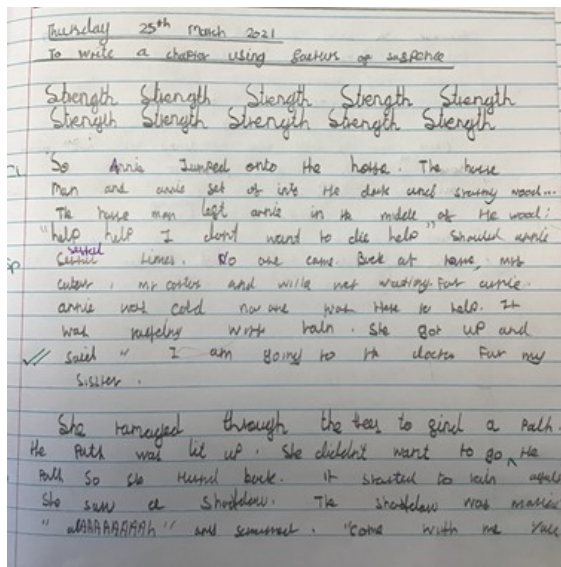 Thursday 25th March 2021
To write a chapter using featurs of suspence
Strength Strength Strength Strength Strength
Strength Strength Strength Strength Strength
So Annie Jumped onto the horse. The horse
man and annie set of into the dark and stormy wood...
The horse man left annie in the middle of the wood!
"help help I don't want to die help" shouted annie
times. No one came. Back at home, mrs
, mr and were not waiting. For annie.
annie was cold no one was there to help. It
was with rain. She got up and
said " I am going to the doctor For my
sister.
She ramaged through the trees to find a path.
the Path was lit up. She didedn't want to go the
Path So she turned back. it started to rain
She saw a Shaddow. The shaddow was
" aAAAAAAAAh " and screamed. "Come with me